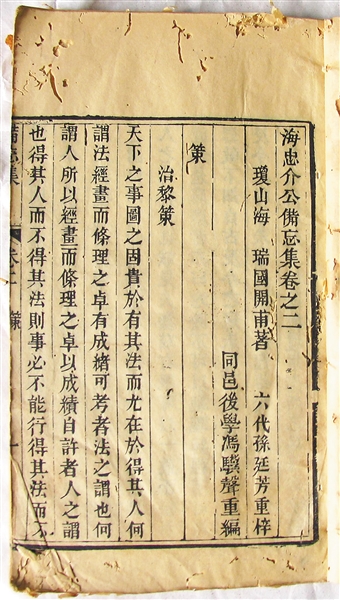 海忠介公備忘集卷之二
瓊山海 瑞國開甫著 六代孫廷芳重梓
同邑後學馮驥聲重編
策
治黎策
天下之事圖之固貴於有其法而尤在於得其人何
謂法經畫而條理之卓有成緒可考者法之謂也何
謂人所以經畫而條理之卓以成績自許者人之謂
也得其人而不得其法則事必不能行得其法而不
備忘集 卷二 策 一